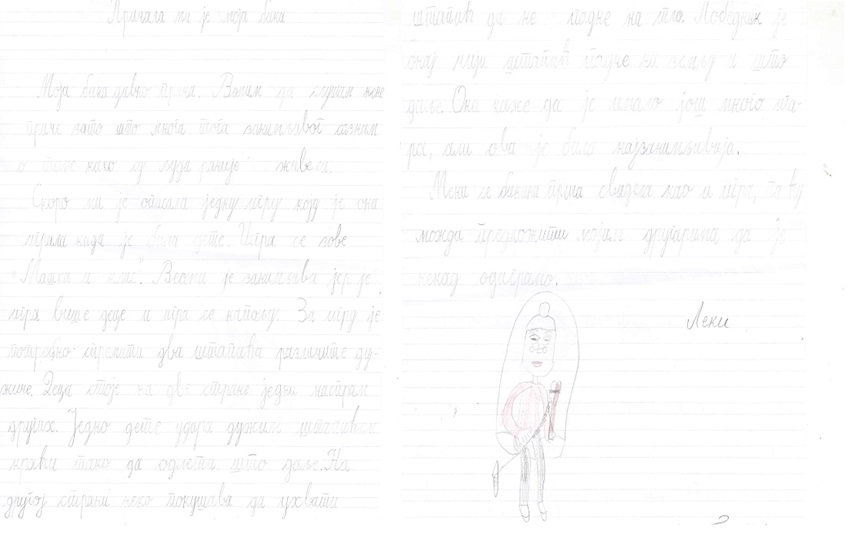 Причала ми је моја бака
Моја бака дивно прича. Волим да слушам њене
приче зато што много тога занимљивог сазнам
о томе како су људи раније живели.
Скоро ми је описала једну игру коју је она
играла када је била дете. Игра се зове
"Машка и клис". Веома је занимљива јер је
игра више деце и игра се напољу. За игру је
потребно спремити два штапића различите ду-
жине. Деца стоје на две стране једни наспрам
других. Једно дете удара дужим штапићем
краћи тако да одлети што даље. На
другој страни неко покушава да ухвати
штапић да не падне на тло. Победник је
онај чији штапић падне на земљу и што
даље. Она каже да је имало још много ига-
ра, али ова је била најзанимљивија.
Мени се бакина прича свидела као и игра, па ћу
можда предложити мојим другарима да је
некад одиграмо.
Леки